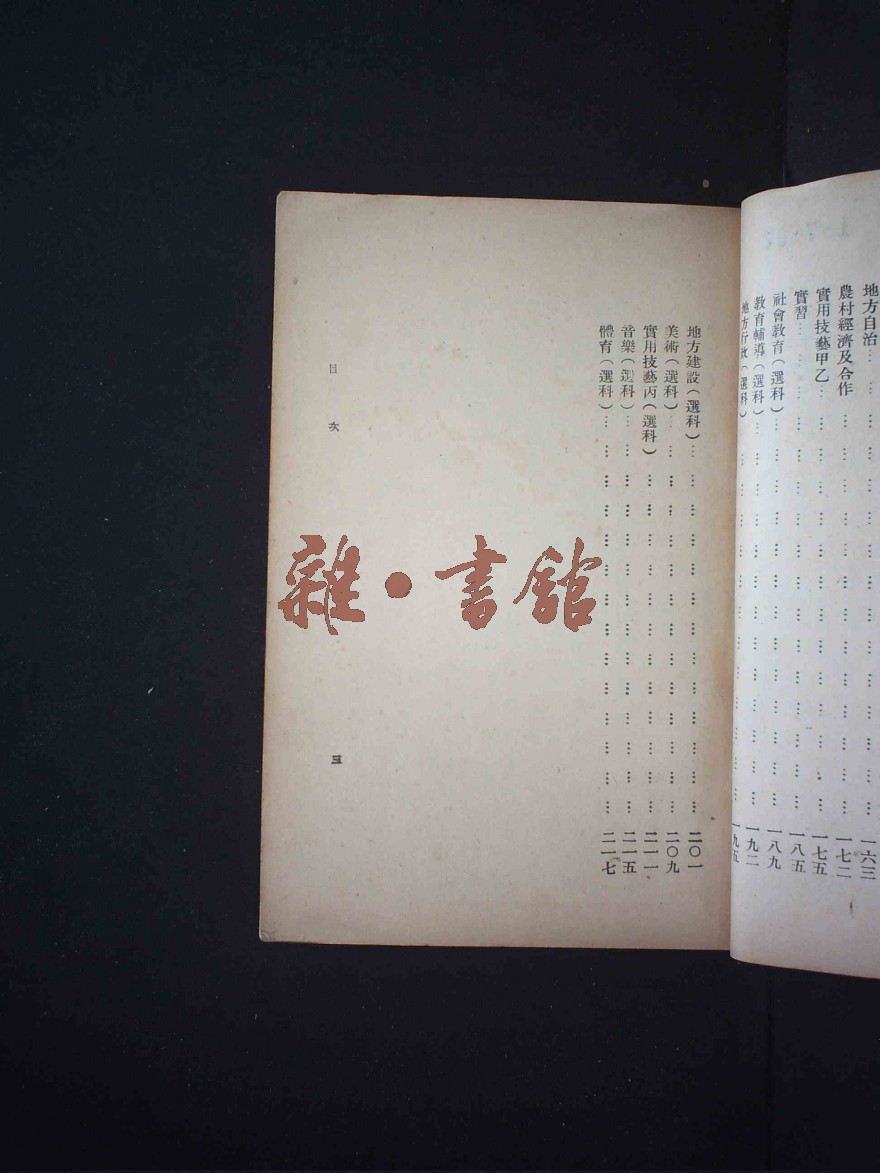 地方自治… … … … … … … … … … … … 一六三
農村經濟及合作 … … … … … … … … … … … 一七二
實用技藝甲乙… … … … … … … … … … … … 一七五
實習… … … … … … … … … … … … … … 一八五
社會教育(選科)… … … … … … … … … … … 一八九
教育輔導(選科)… … … … … … … … … … … 一九二
地方行政(選科) … … … … … … … … … … 一九五
地方建設(選科)… … … … … … … … … … … 二〇一
美術(選科)… … … … … … … … … … … … 二〇九
實用技藝丙(選科) … … … … … … … … … … 二一一
音樂(選科)… … … … … … … … … … … … 二一五
體育(選科)… … … … … … … … … … … … 二一七
目次
三
雜•書館